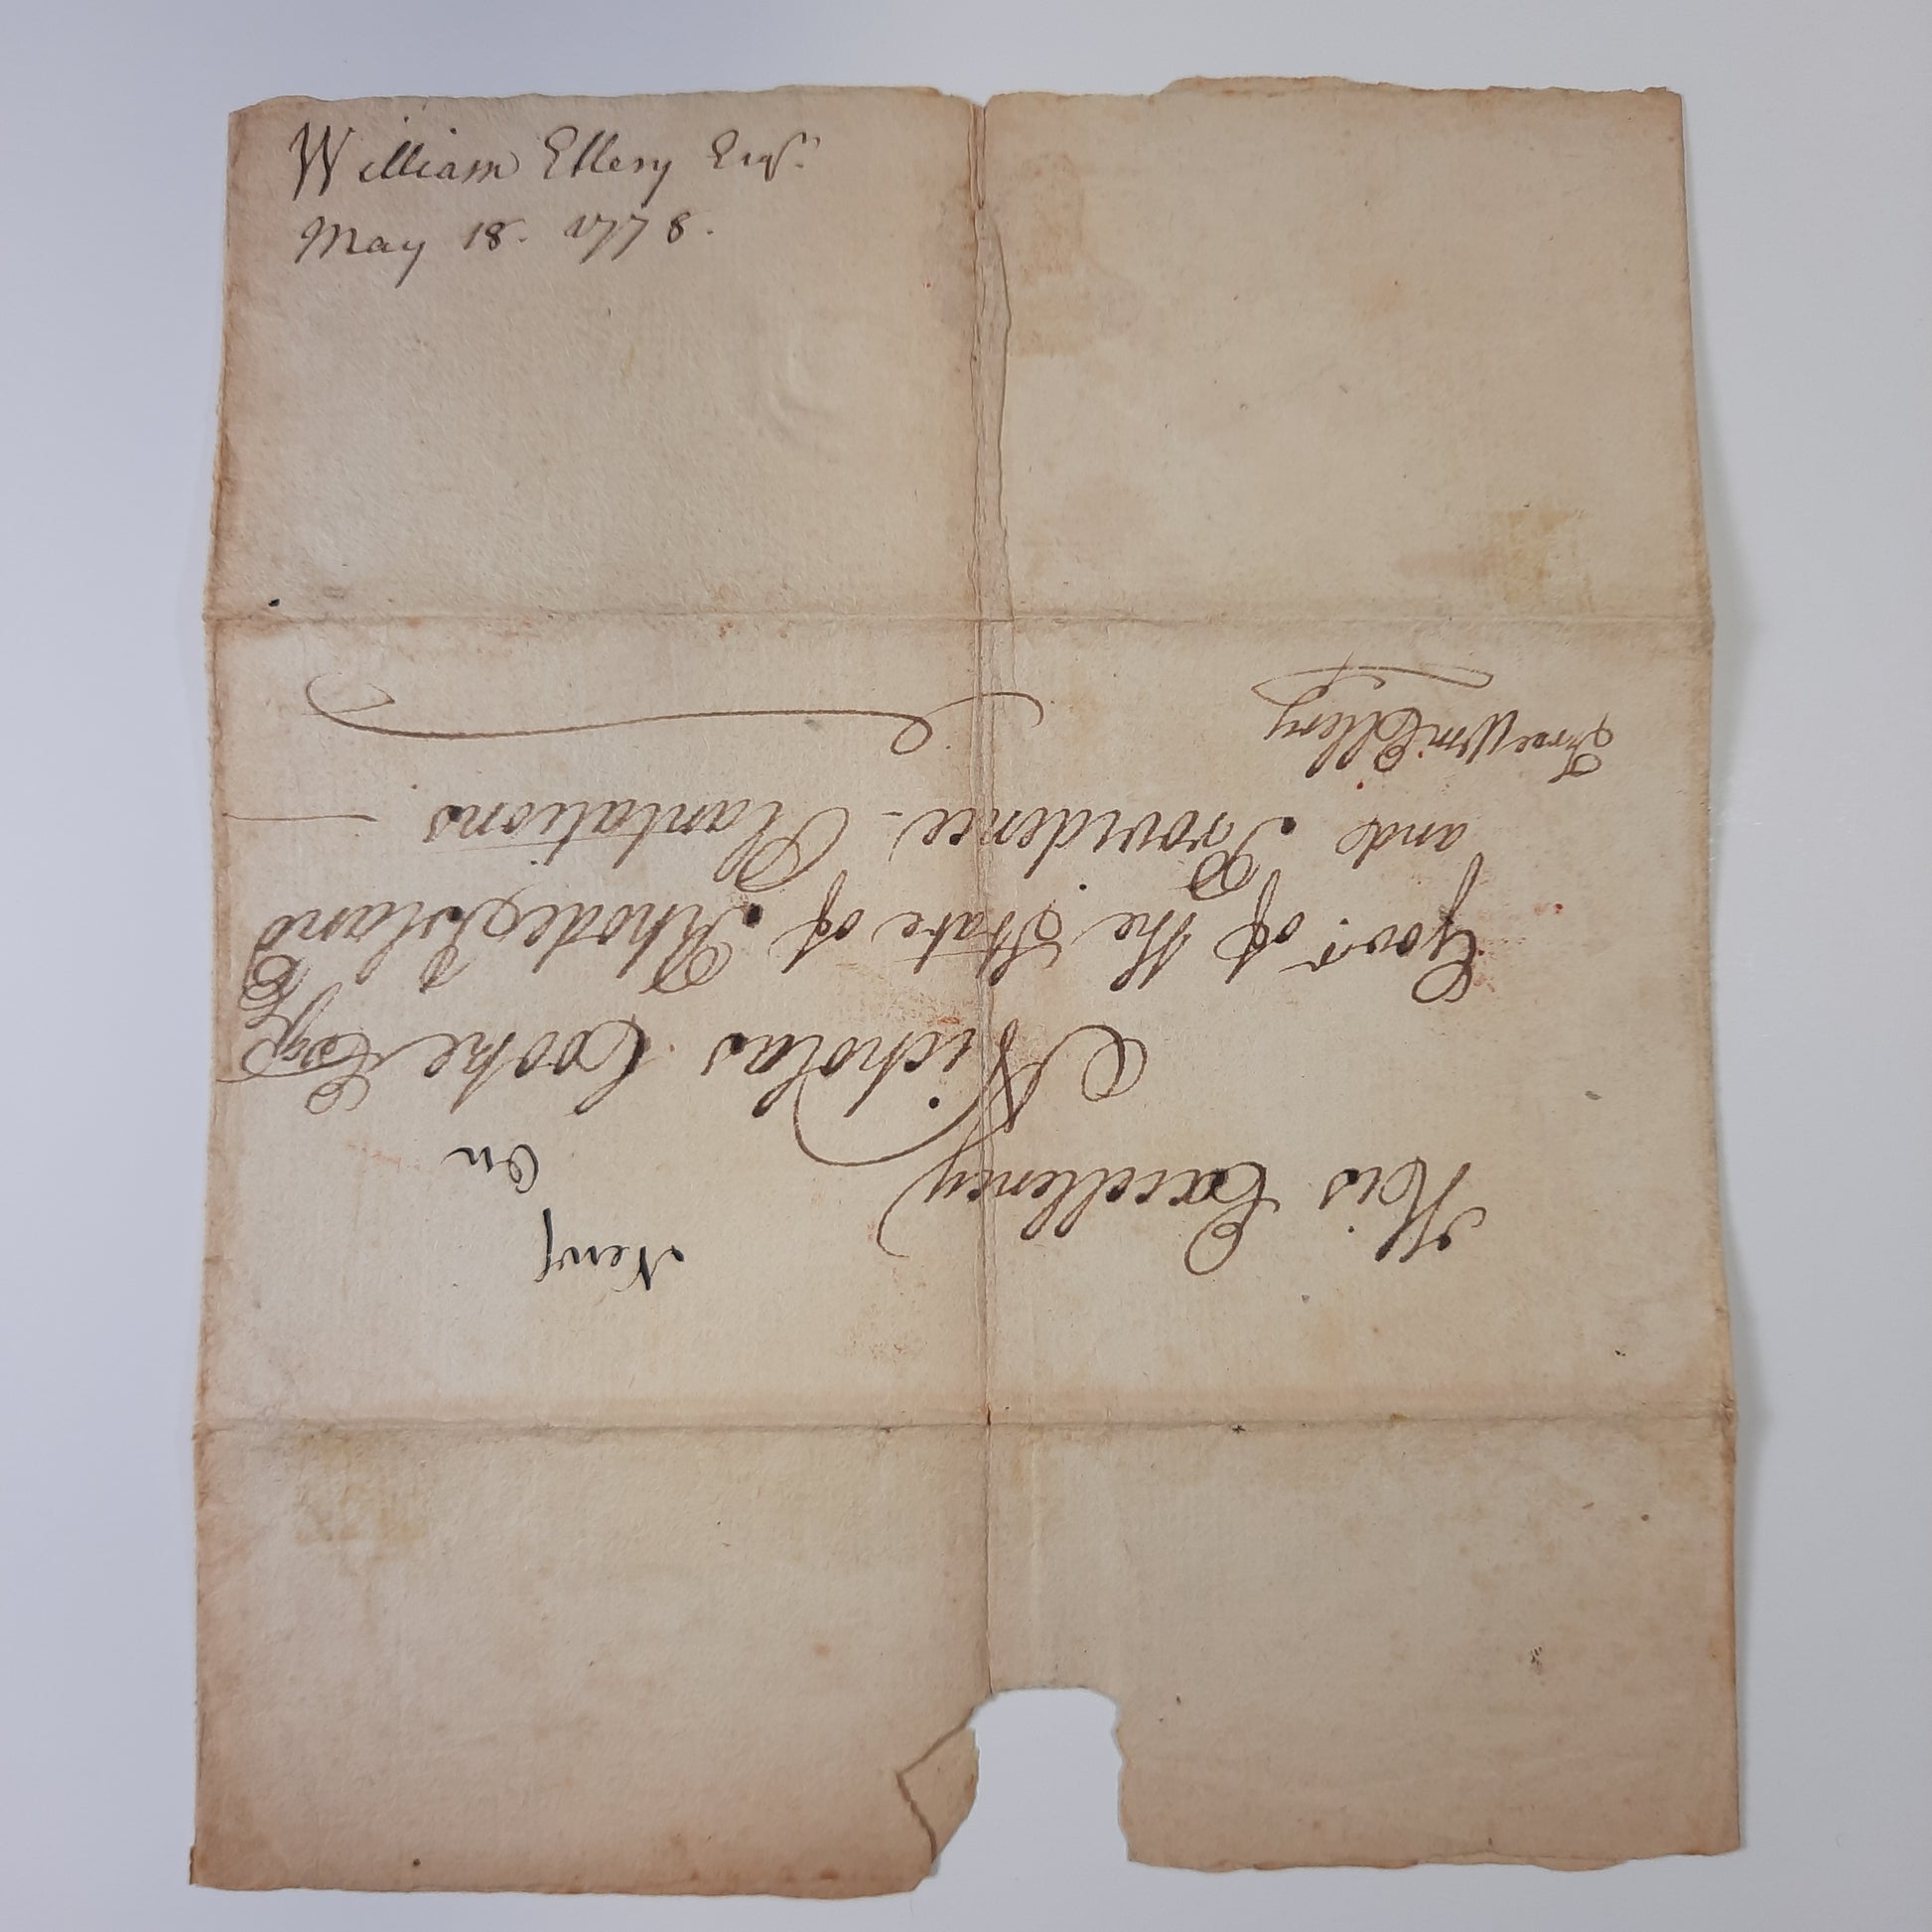 William Ellery Esqr.
May 18. 1778.
His Excellency
Nicholas Cooke Esqr
Govr. of the State of Rhode Island
and Providence-Plantations
Free Wm Ellery